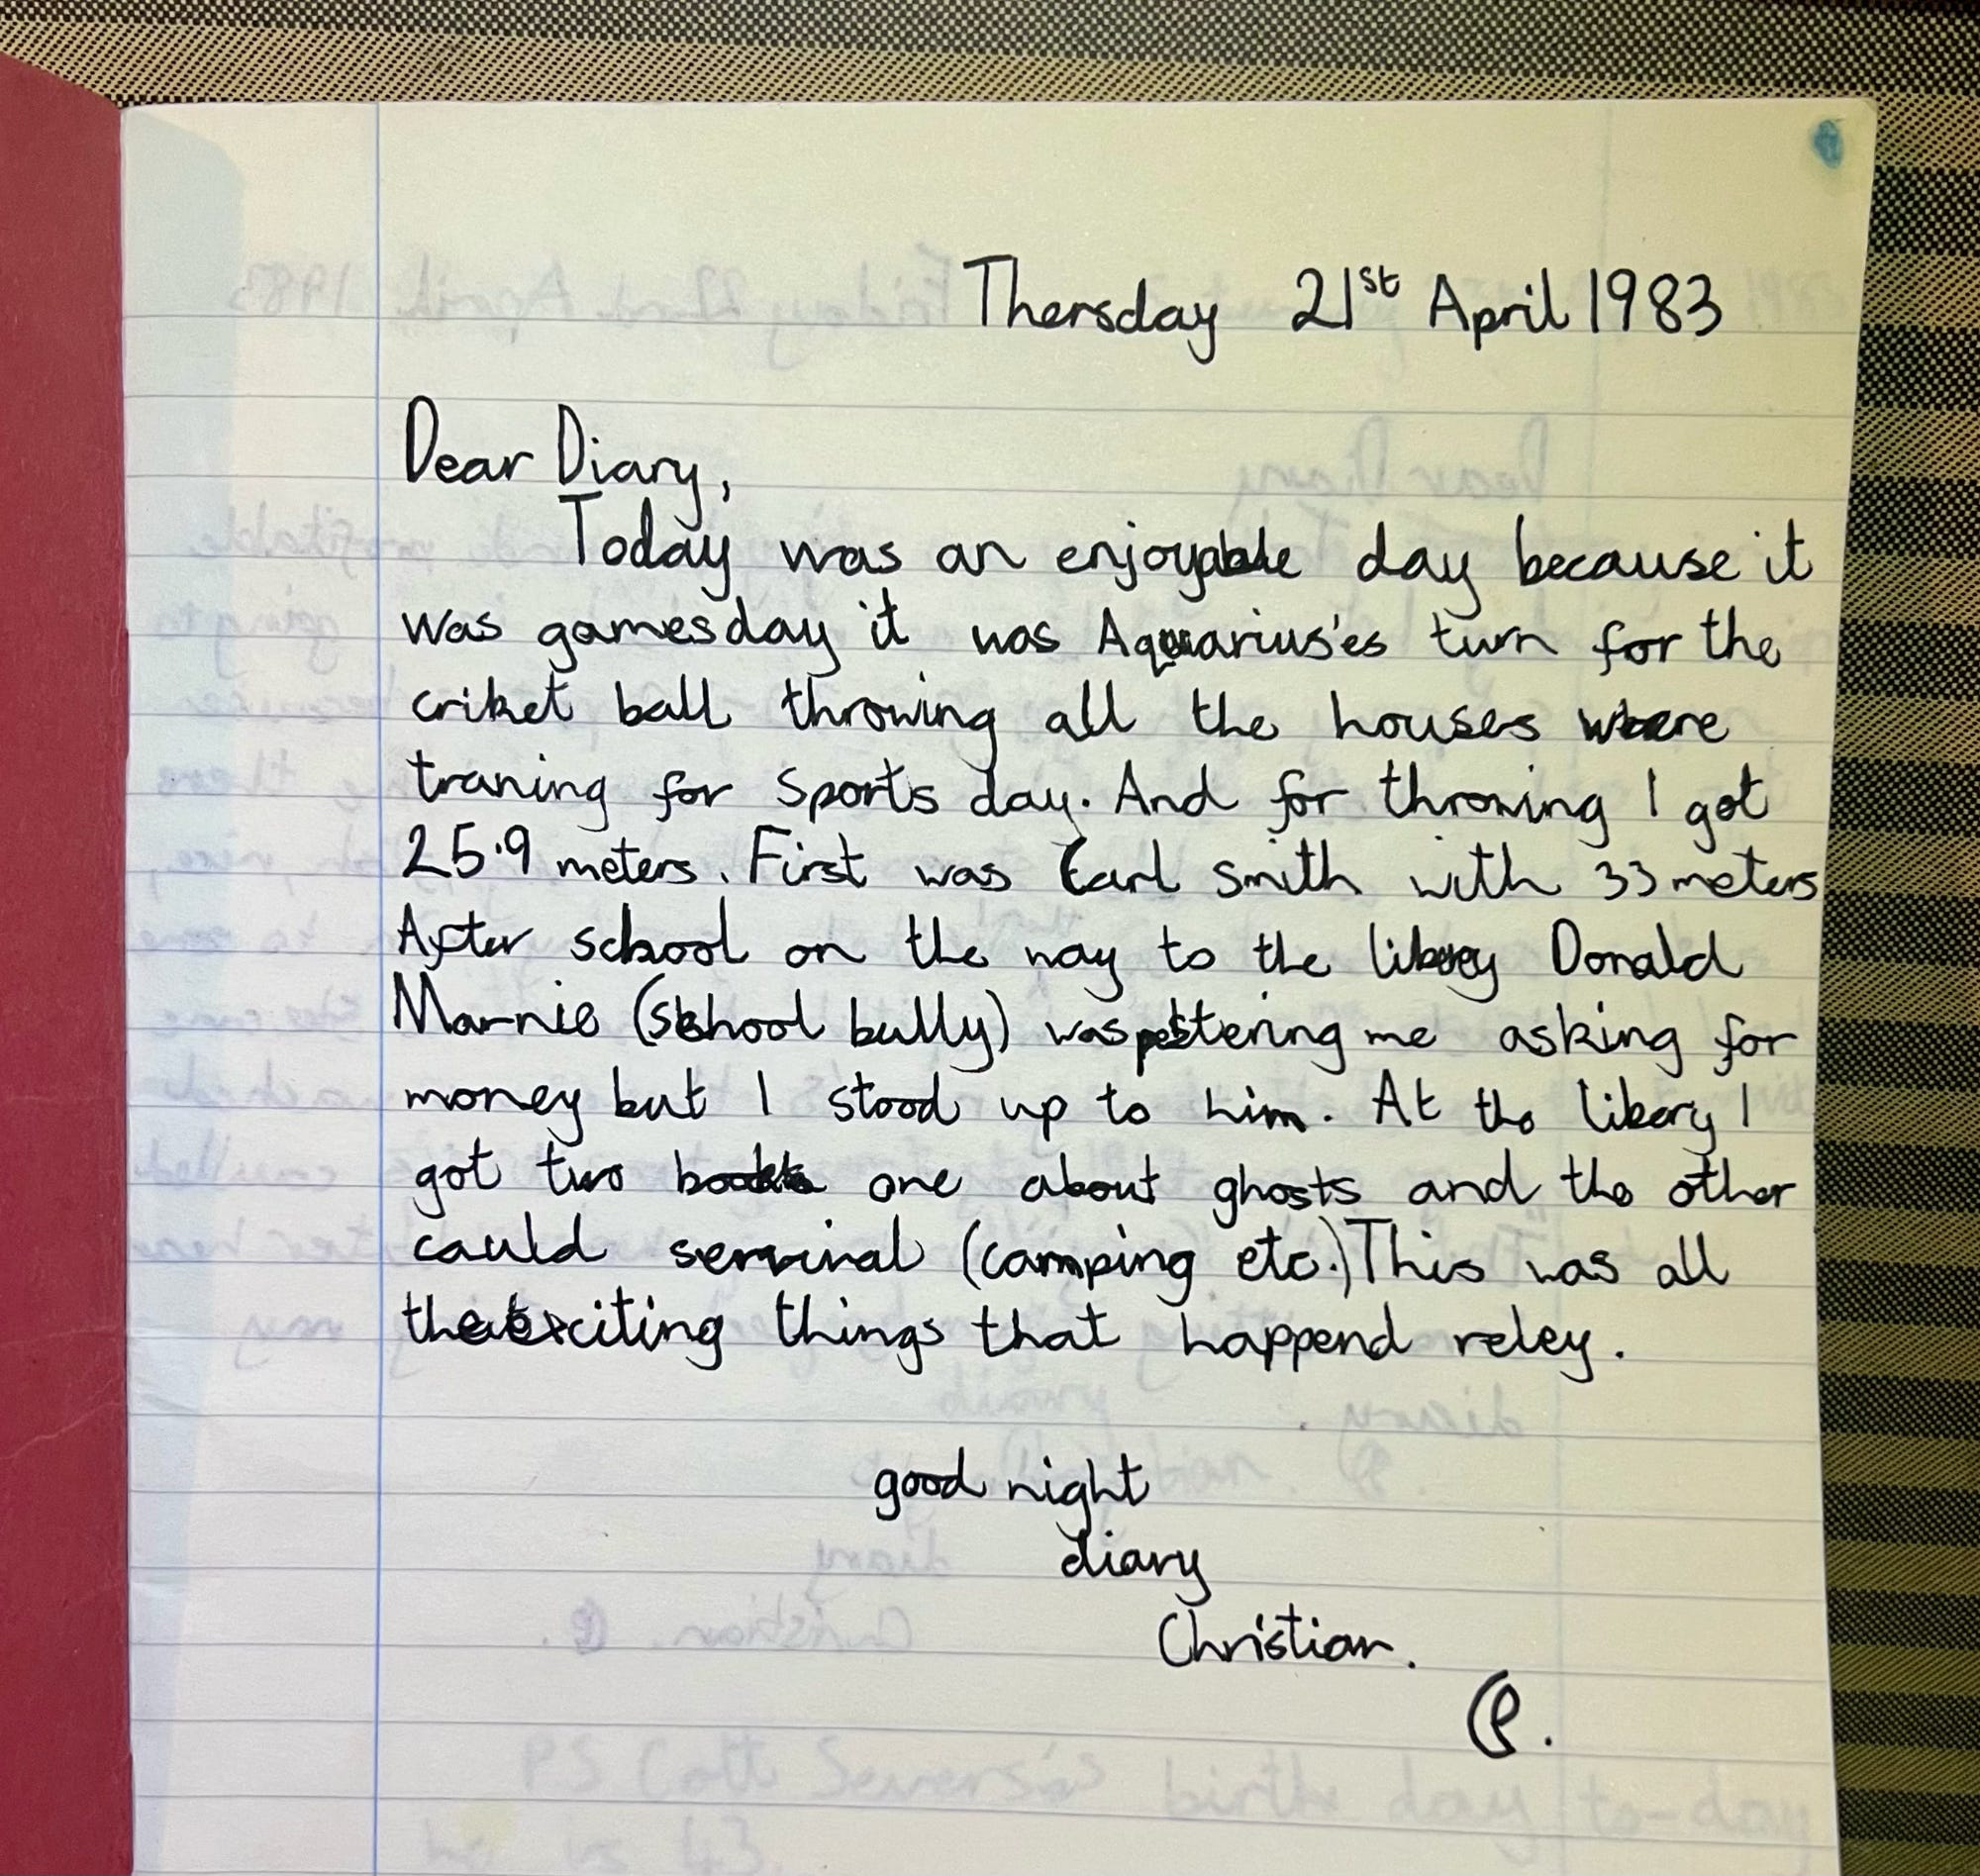 Thersday 21st April 1983
Dear Diary,
Today was an enjoyable day because it
was gamesday it was Aquarius'es turn for the
criket ball throwing all the houses where
traning for Sports day. And for throwing I got
25.9 meters. First was Carl Smith with 33 meters
After school on the way to the libery Donald
Marnie (school bully) was pestering me asking for
money but I stood up to him. At the libery I
got two books one about ghosts and the other
cauld servival (camping etc.) This was all
the exciting things that happend reley.
good night
diary
Christian.